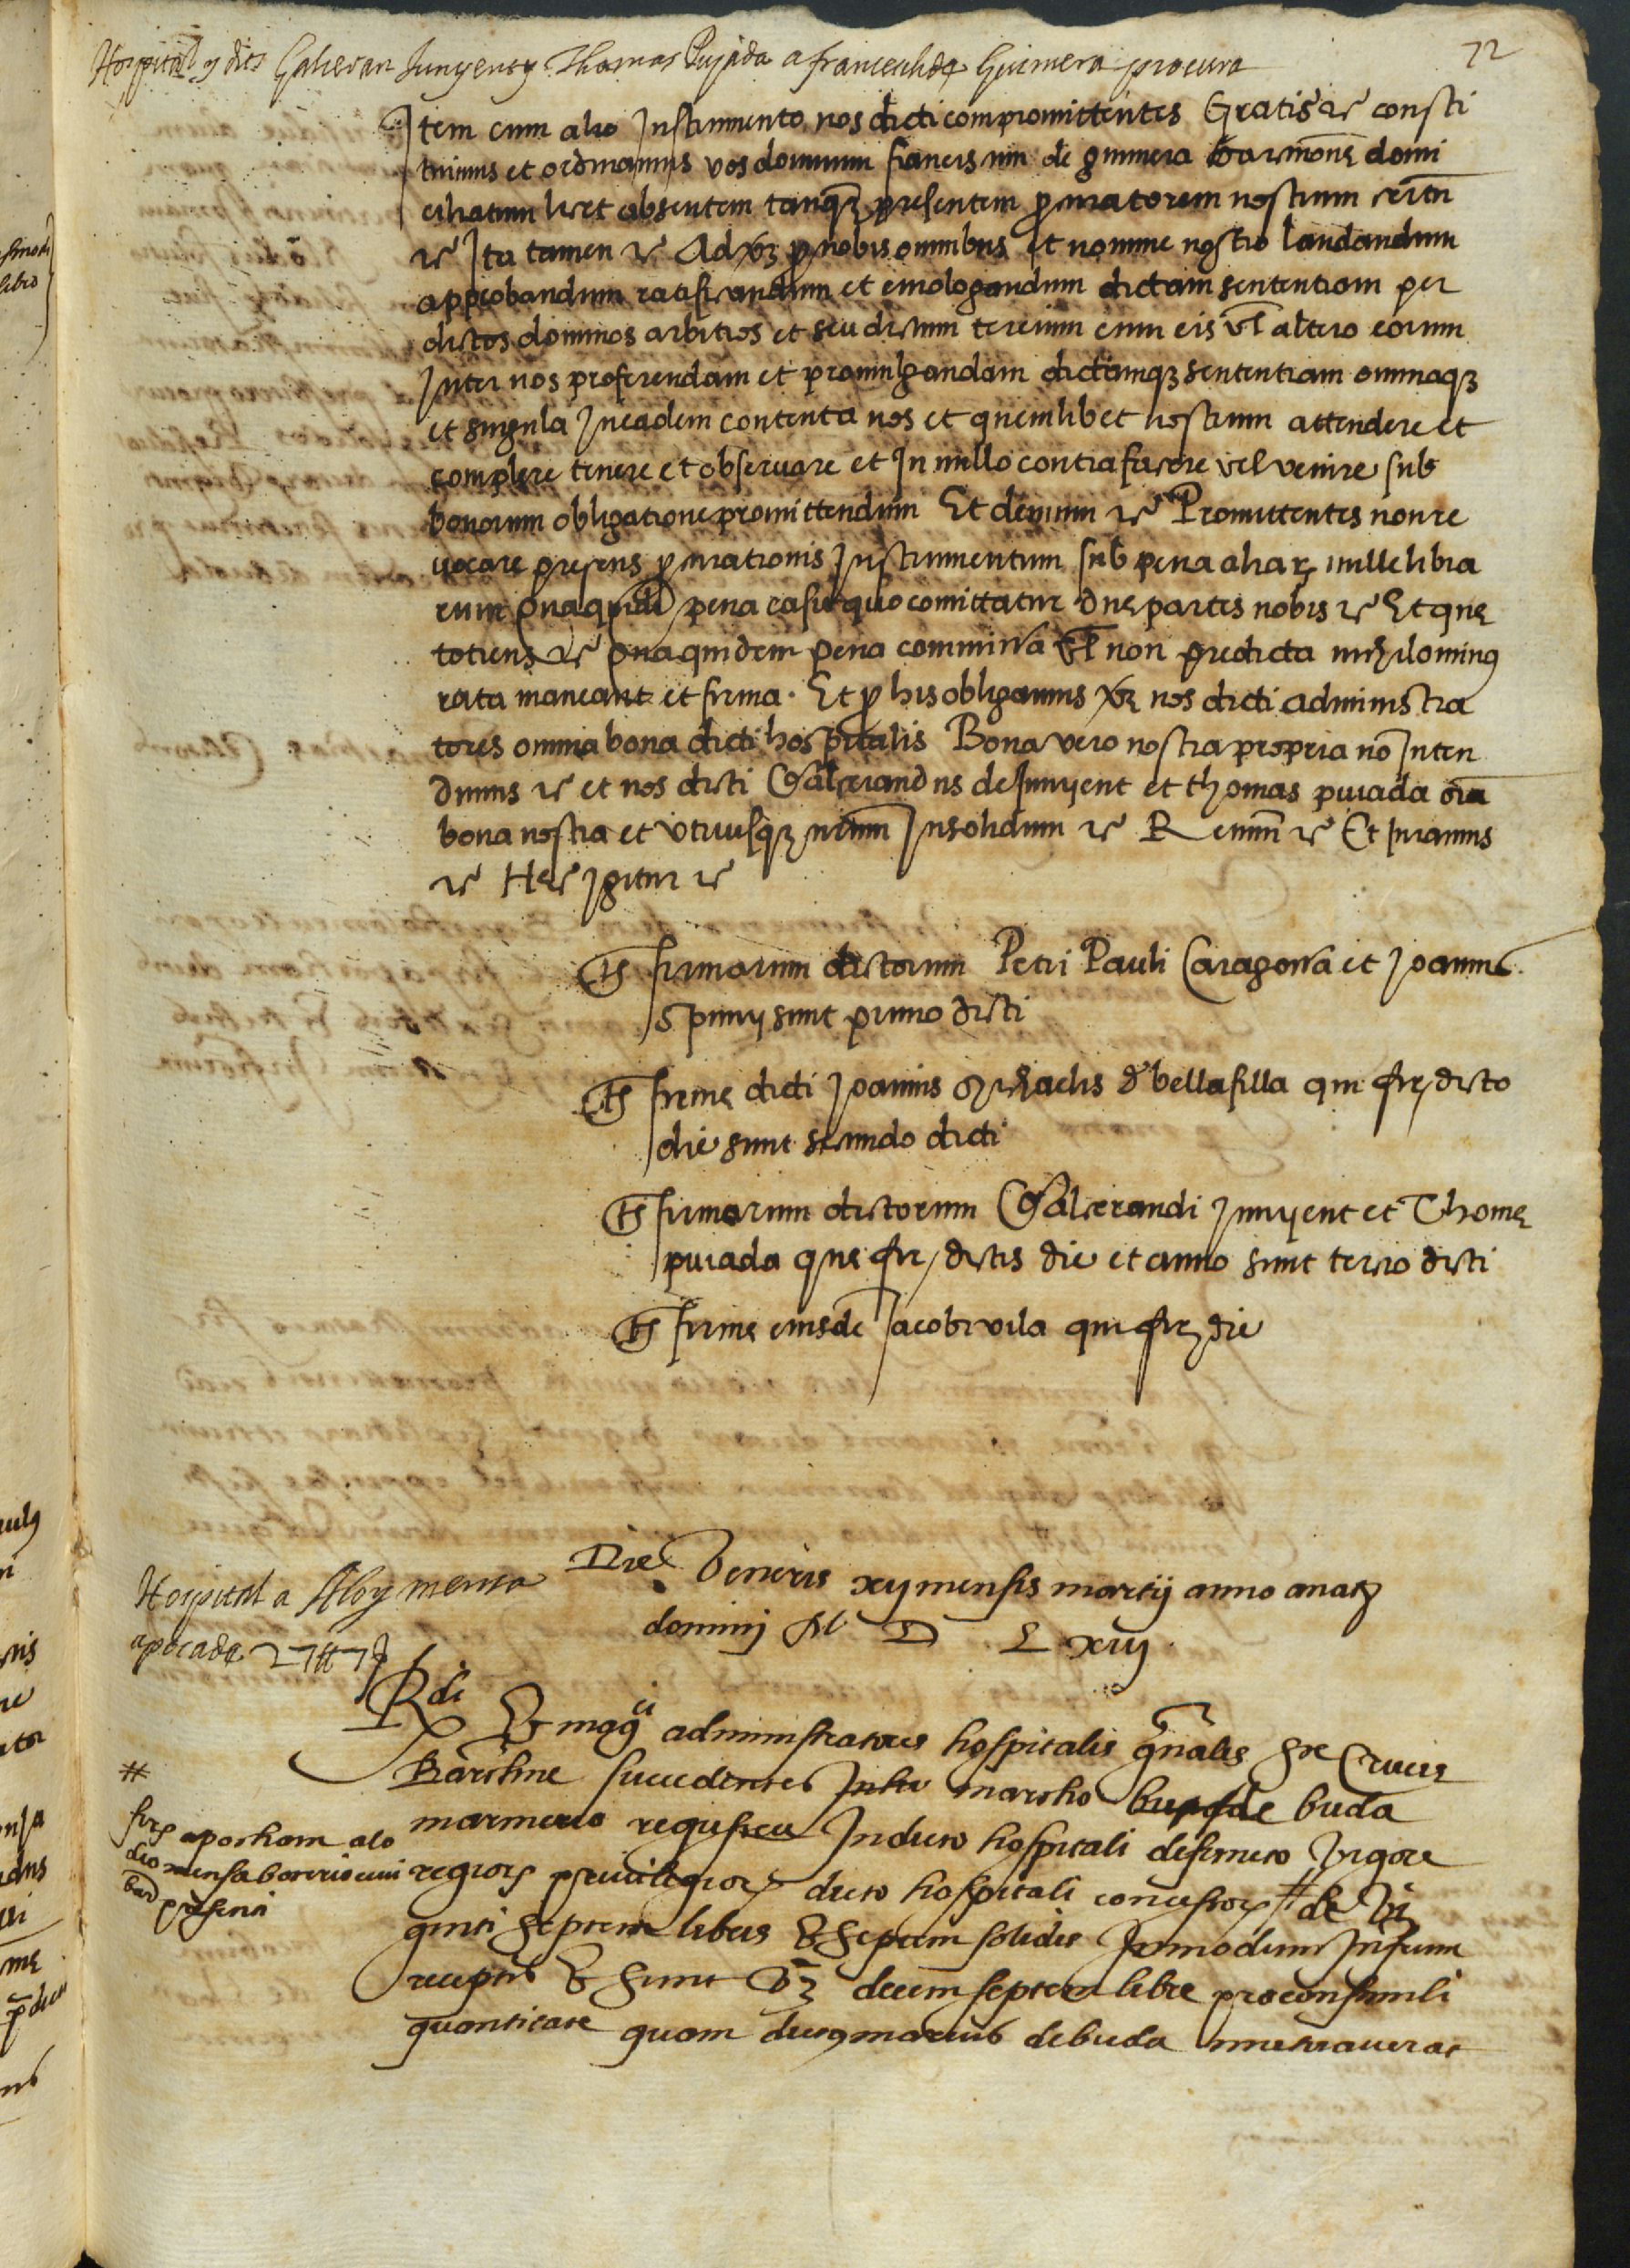 72
Hospital y dits Galceran Junyent y Thomas Pujada a francesch de Guimera procura
Item cum alio Instrumento nos dicti compromittentes Gratis &c consti
tuimus et ordinamus vos dominum de guimera barcinone domi
ciliatum licet absentem tanqz presentem procuratorem nostrum certum
&c Ita tamen &c Ad vz pro nobis omnibus et nomine nostro laudandum
approbandum ratificandum et emologandum dictam sententiam per
dictos dominos arbitros et seu dictum tercium cum eis vel altero eorum
Inter nos proferendam et promulgandam dictamqz sententiam omniaqz
et singula In eadem contenta nos et quemlibet nostrum attendere et
complere tenere et observare et In nullo contrafacere vel venire sub
bonorum obligatione promittendum Et demum &c Promittentes non re
vocare presens procurationis Instrumentum sub pena aliar mille libra
rum pena casu quo comittatur due partes nobis &c Et que
totiens &c quidem pena commissa vel non predicta nihilominus
rata maneant et firma. Et pro his obligamus vz nos dicti administra
tores omnia bona dicti hospitalis Bona vero nostra propria no Inten
dimus &c et nos dicti Galcerandus de Junyent et thomas puiada oia
bona nostra et utriusqz nrum Insolidum &c Renun &c Et Iuramus
&c Hec Igitur &c
Ts firmarum dictorum Petri Pauli Caragossa et Joannis
Spuny sunt primo dicti
Ts firme dicti Joannis Michaelis de bellafilla qui fir dicto
die sunt secundo dicti
Ts firmarum dictorum Galcerandi Junyent et Thome
puiada que fir dictis die et anno sunt tercio dicti
Ts firme eiusde Jacobi vila qui fir die
Die Veneris xij mensis martij anno a natz
dominj M D L xiij
Hospital a Aloy mensa
apoca de 27 tt 7 s
Rdi Et magci administratores hospitalis gnalis ste Crucis
Barchne succedentes marcho de buda
marinerio In dicto hospitali defuncto vigore
regiors privilegiors dicto hospitali concessors # de vi
ginti septem libris & septem solidis In modum Infrum
receptis & sunt vz decem septem libre pro consimili
quantitate quam dictus marcus de buda
#
firs apocham alo
dio mensa bar
presenti